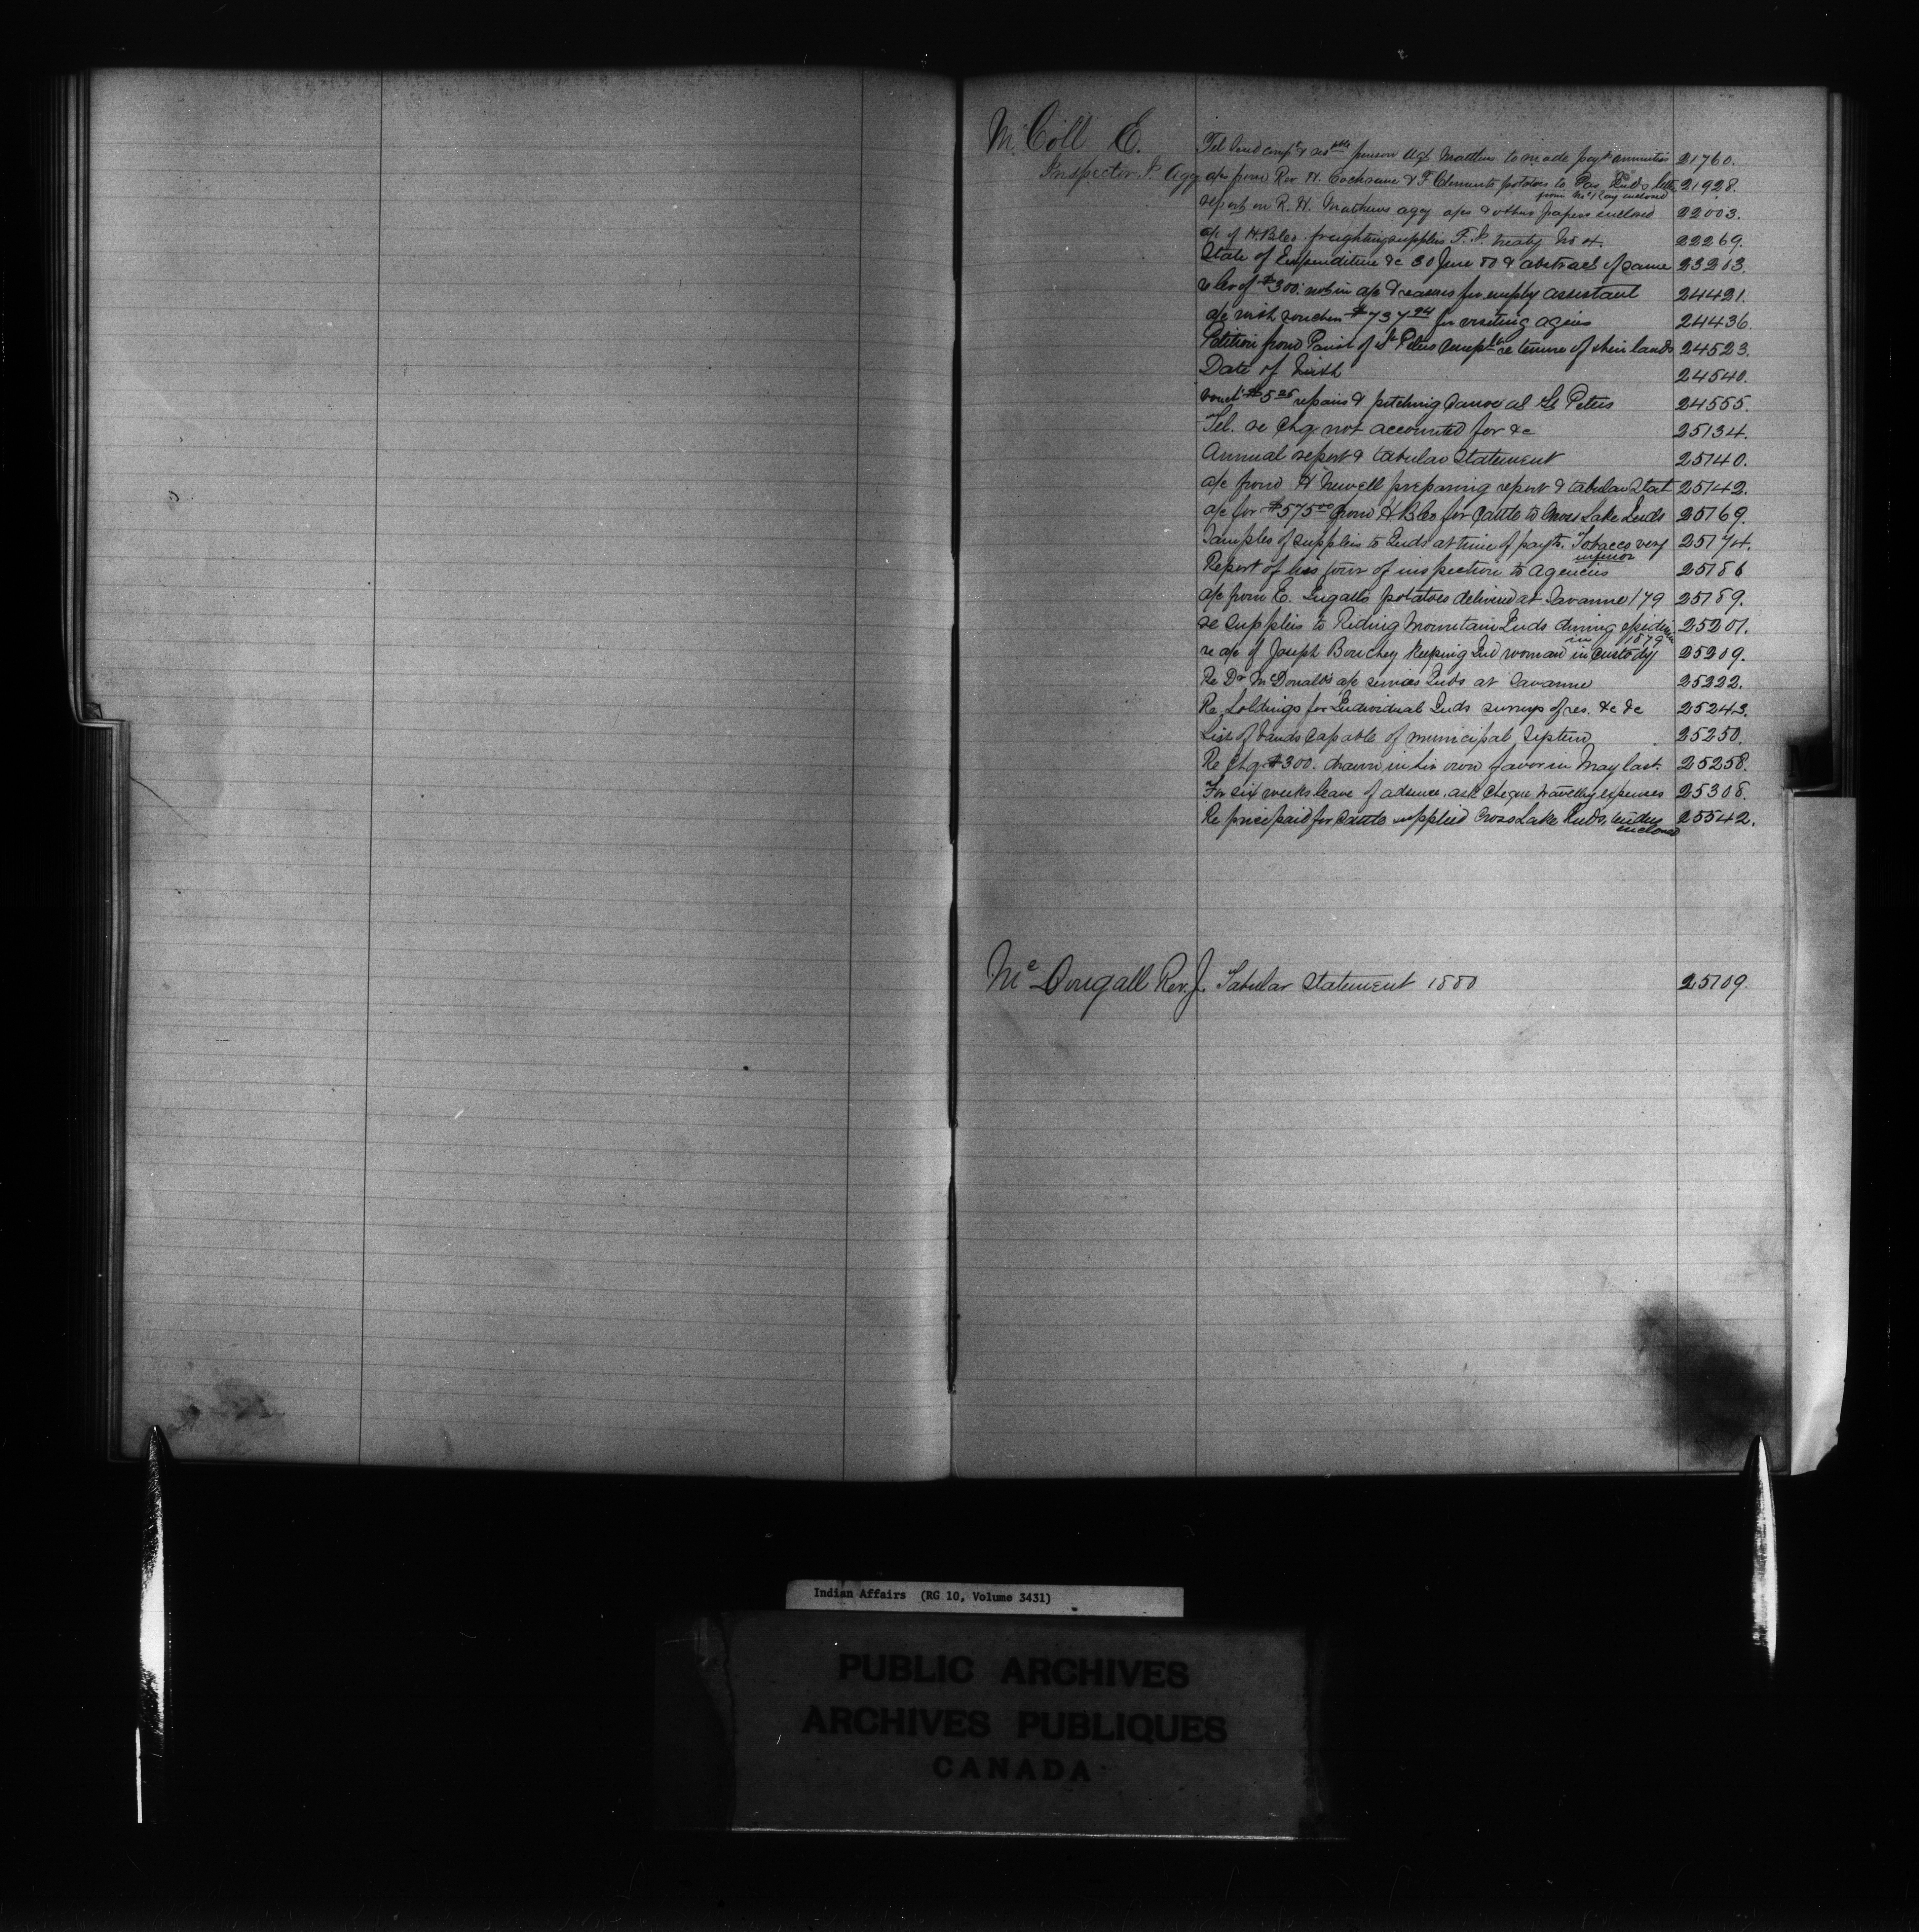 McColl E.
Inspector I. Agcy
Tel Send comp't & person Agt Matthews to made pay't annuities 21760.
a/cs from Rev H. Cochrane & F Clements potatoes to Pas Inds letter 21928.
from McKay enclosed
report on R. H. Mathews agcy a/cs & other papers enclosed 22003.
a/c of H.B.Co. freighting supplies F. P. treaty No 4. 22269.
State of Expenditure &c 30 June 80 & abstract of same 23203.
of $300. not in a/c & reasons for employ assistant 24421.
a/c with vouchers $737.94 for visiting agcies 24436.
Petition from Parish of St Peters re tenure of their lands 24523.
Date of birth 24540.
vouch $5 repairs & pitching Canoe at St Peters 24555.
Tel. re chq not accounted for &c 25134.
Annual report & tabular Statement 25140.
a/c from H Newell preparing report & tabular Stat 25142.
a/c for $575.00 from H B Co for Cattle to Cross Lake Inds 25169.
Samples of supplies to Inds at time of payts. Tobacco very 25174.
inferior
Report of his tour of inspection to agencies 25186
a/c from E. Ingalls potatoes delivered at Savanne 179 25189.
re supplies to Riding Mountain Inds during epidem 25201.
in 1879
re a/c of Joseph Bouchey keeping Ind woman in Custody 25209.
Re Dr McDonalds a/c services Inds at Savanne 25222.
Re holdings for Individual Inds surveys of res. &c &c 25243.
List of bands capable of municipal System 25250.
Re Chq $300. drawn in his own favor in May last. 25258.
For six weeks leave of absence, ask cheque travellg expenses 25308.
Re price paid for Cattle supplied Cross Lake Inds, tenders 25542.
enclosed
McDougall Rev. J. Tabular Statement 1880 25109.
Indian Affairs (RG 10, Volume 3431)
PUBLIC ARCHIVES
ARCHIVES PUBLIQUES
CANADA